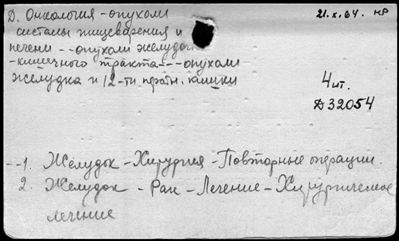 Д. Онкология - опухоли 21.X.64. нр
системы пищеварения и
печени -- опухоли желудоч
-кишечного тракта --- опухоли
желудка и 12-ти перстн. кишки
4 шт.
Д32054
--1. Желудок - Хирургия - Повторные операции.
2. Желудок - Рак - Лечение - Хирургическое
лечение